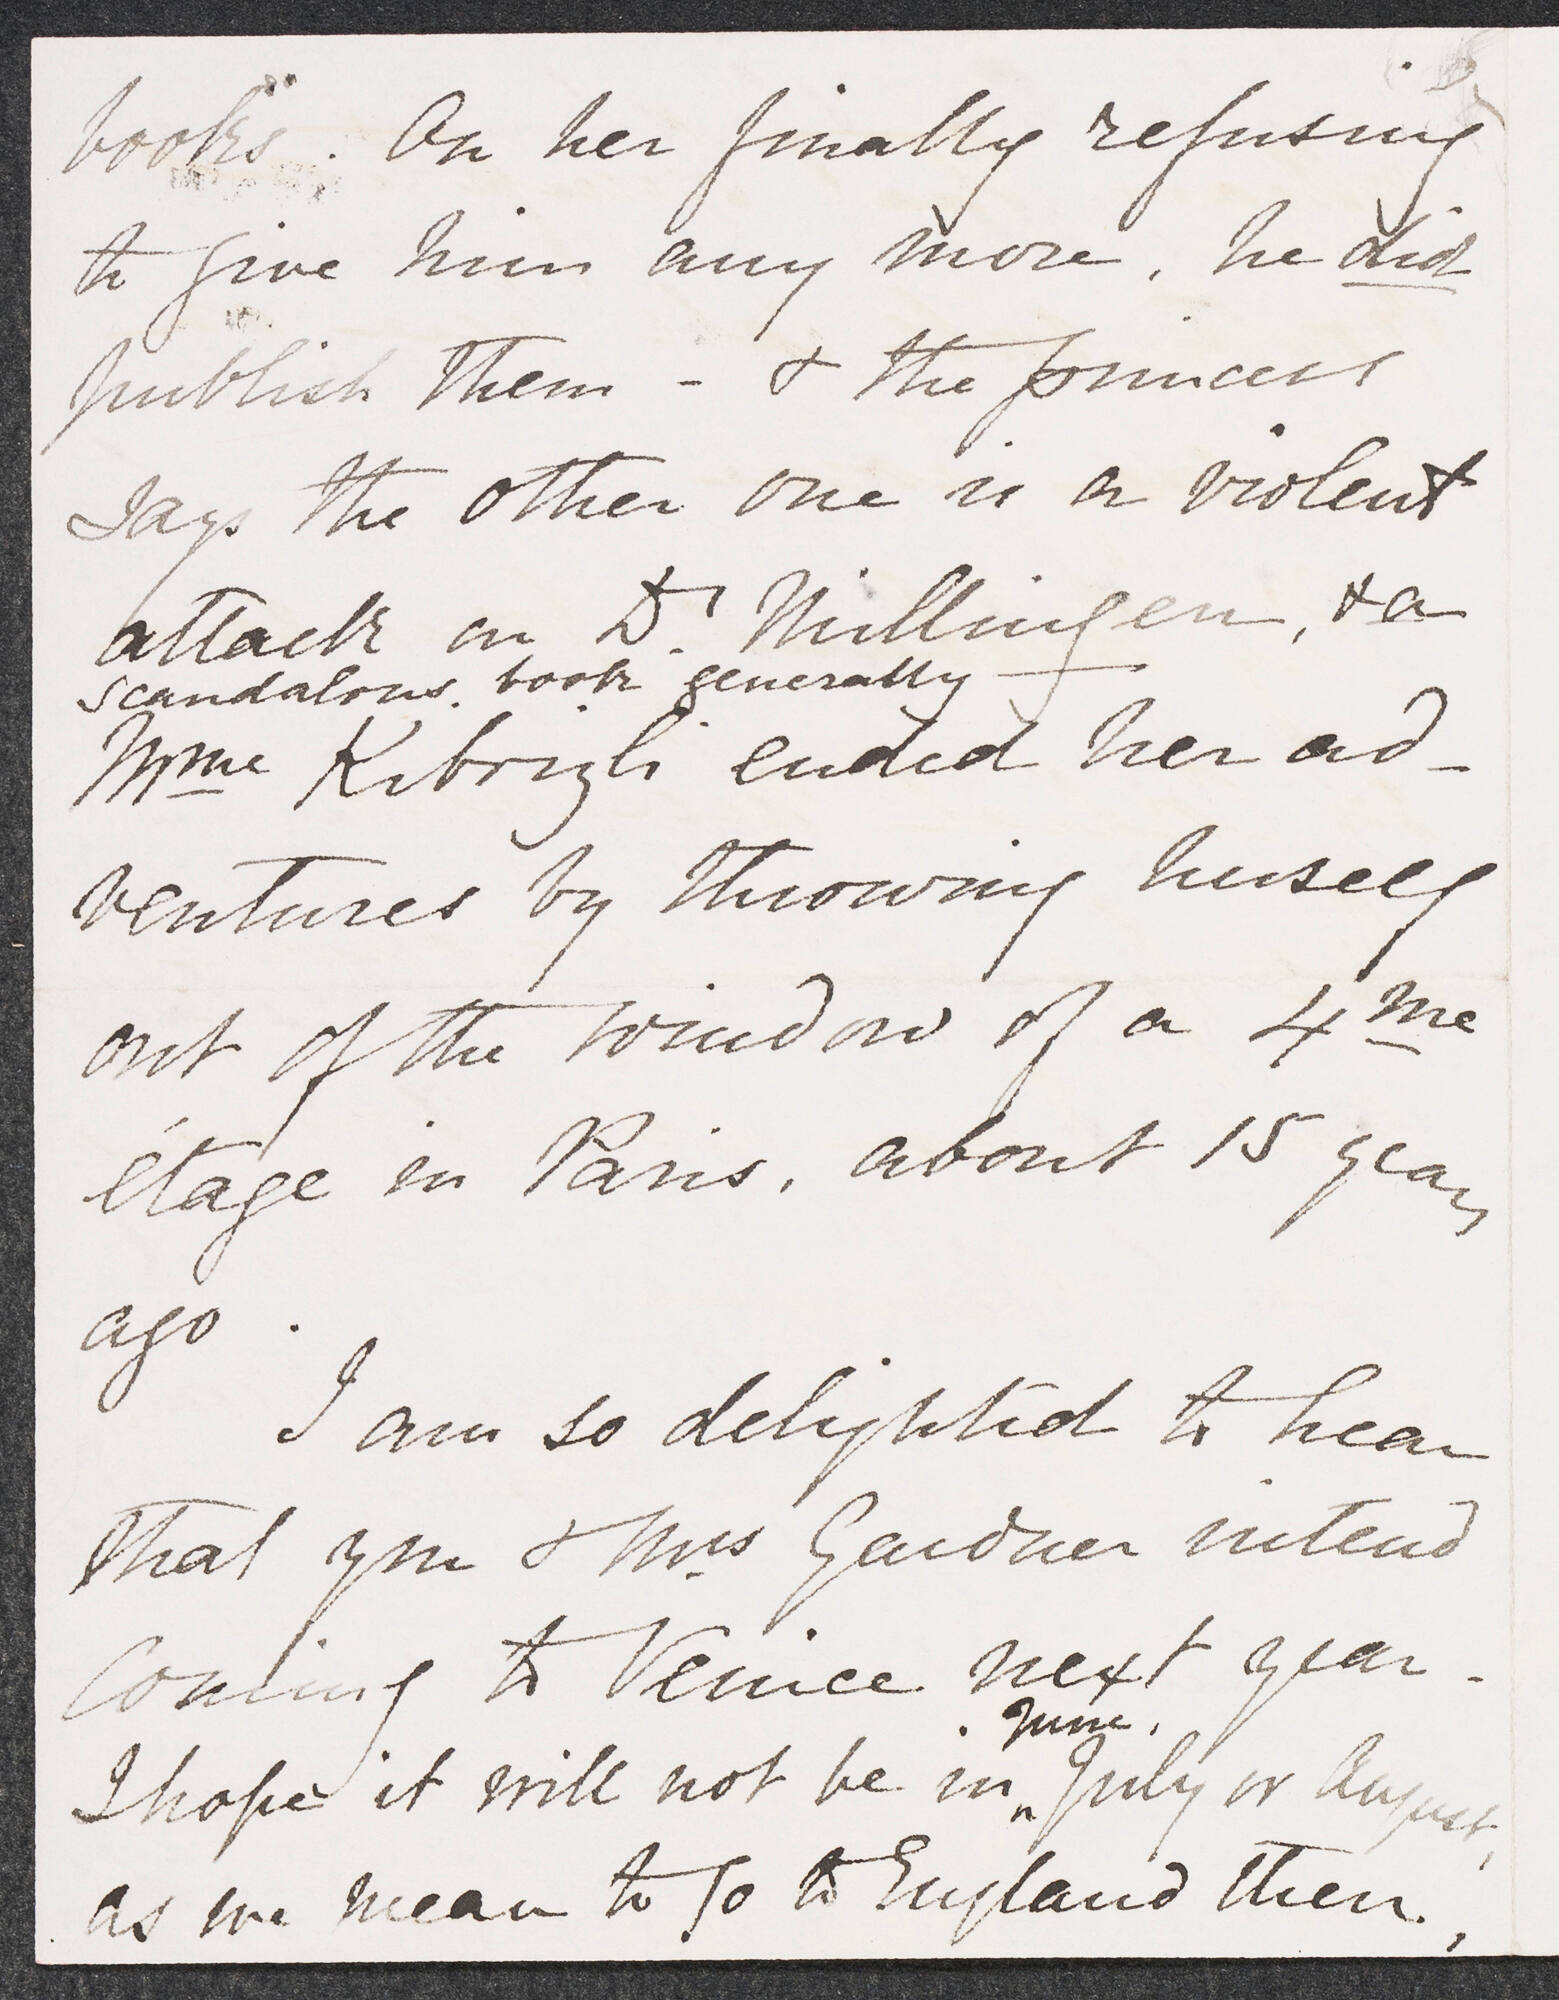 books". On her finally refusing
to give him any more, he did
publish them - & the princess
says the other one is a violent
attack on Dr. Millingen, & a
scandalous book generally —
Mme Kibrizli ended her ad-
ventures by throwing herself
out of the window of a 4me
étage in Paris, about 15 years
ago.
I am so delighted to hear
that you & Mrs Gardner intend
coming to Venice next year -
June,
I hope it will not be in July or August,
as we mean to go to England then,